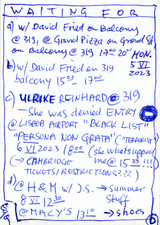 WAITING FOR
a) w/ David Fried on balcony
@ 319, @ Grand Pizza on Grand St
on balcony @ 319 17:00 20:00
NOV.
5 VI
2023
b) w/ David Fried on 319
balcony 15:00 17:00
c) ULRIKE REINHARD @ 319
– She was denied ENTRY
@ LISBOA AIRPORT "BLACK LIST"
"PERSONA NON GRATA"
6 VI 2023 18:00 (she whatsapped
(→ CAMBRIDGE me @ 15:35 !!!)
TICKETS/RESTRICTIONS???)
d) @ H&M w/ J.S. → summer
8 VI 12:30 stuff
@ MACY'S 13:10 → SHOES